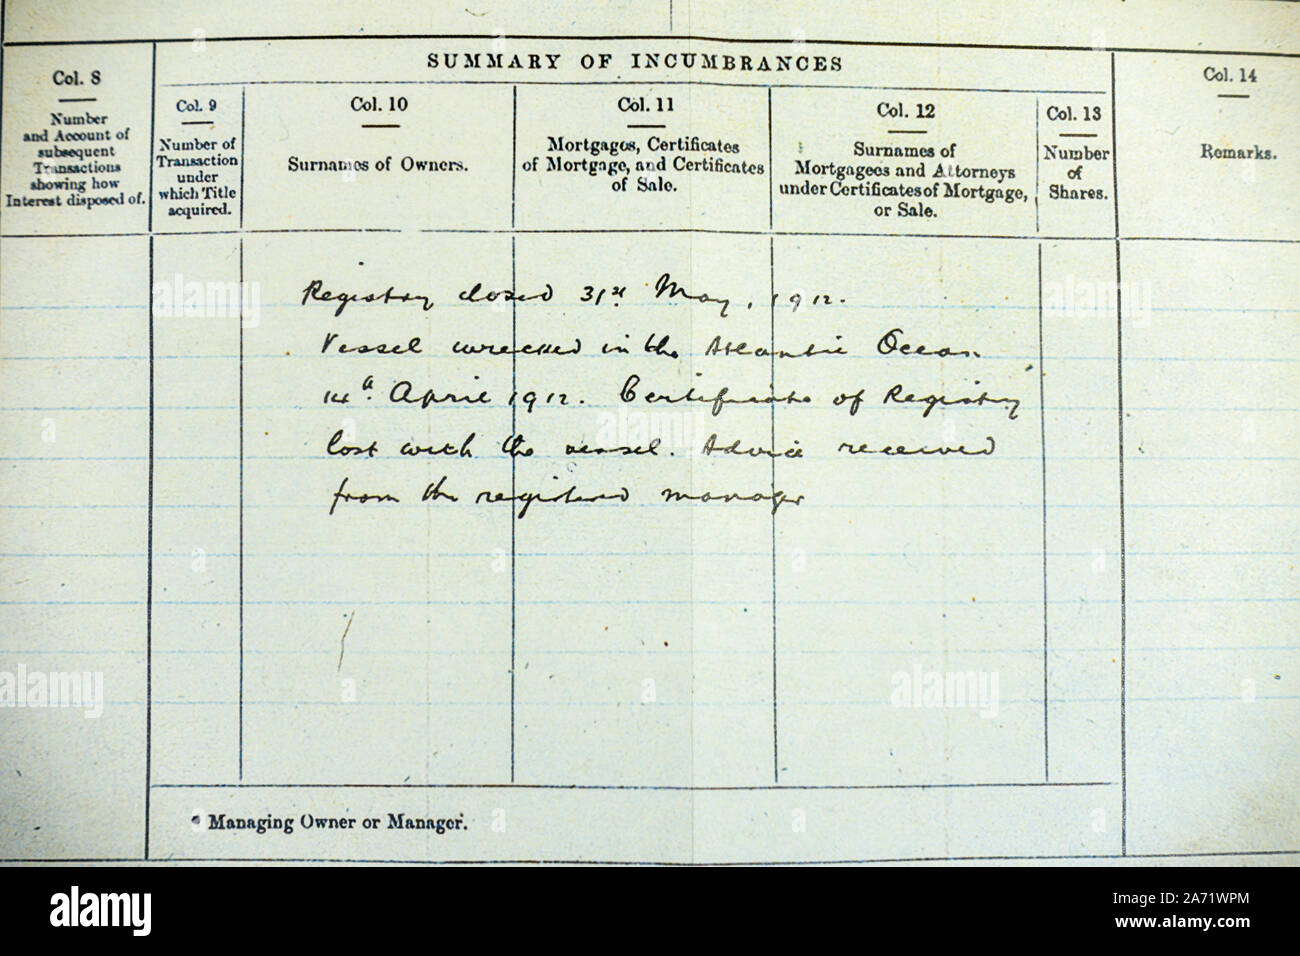 SUMMARY OF INCUMBRANCES
Col. 8
Number
and Account of
subsequent
Transactions
showing how
Interest disposed of.
Col. 9
Number of
Transaction
under
which Title
acquired.
Col. 10
Surnames of Owners.
Col. 11
Mortgages, Certificates
of Mortgage, and Certificates
of Sale.
Col. 12
Surnames of
Mortgagees and Attorneys
under Certificates of Mortgage,
or Sale.
Col. 13
Number
of
Shares.
Col. 14
Remarks.
Registry closed 31st May, 1912.
Vessel wrecked in the Atlantic Ocean
14th April 1912. Certificate of Registry
lost with the vessel. Advice received
from the registered manager
* Managing Owner or Manager.
alamy
alamy
alamy
alamy
alamy
alamy
alamy
Image ID: 2A71WPM
www.alamy.com